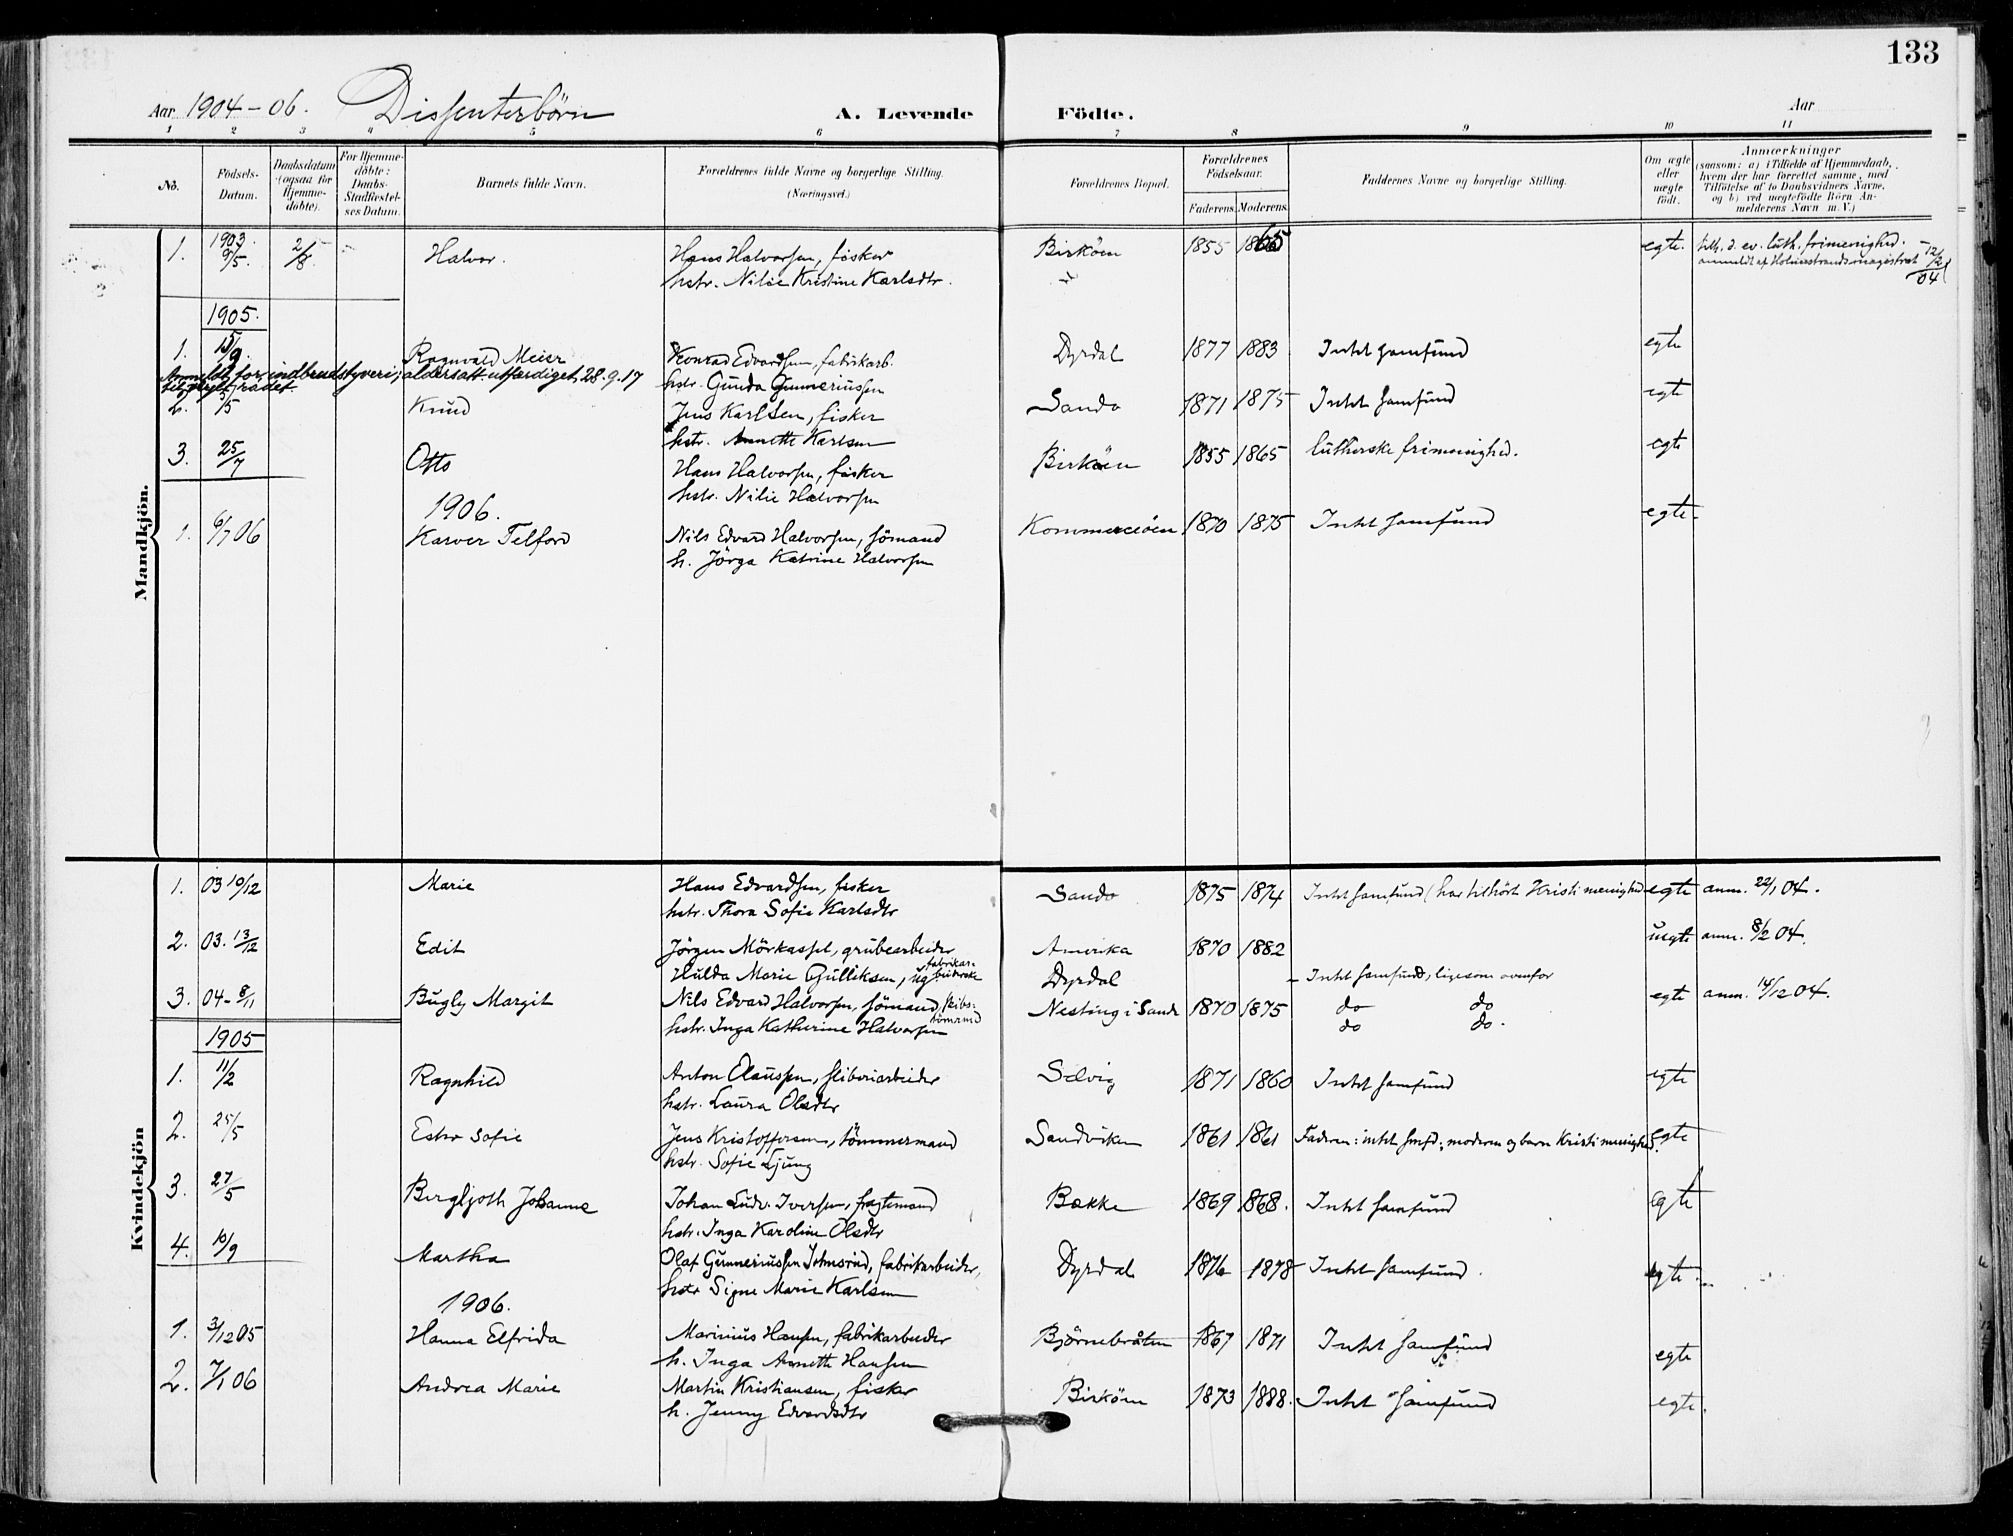 133
Aar 1904-06. Dissenterbörn A. Levende Födte. Aar
1 2 3 4 5 6 7 8 9 10 11
No. Födsels-Datum. Daabsdatum (ogsaa for Hjemmedöbte). For Hjemmedöbte: Daabs-Stadfæstelses Datum. Barnets fulde Navn. Forældrenes fulde Navne og borgerlige Stilling. (Næringsvei.) Forældrenes Bopæl. Forældrenes Födselsaar. Faderens. Moderens. Faddernes Navne og borgerlige Stilling. Om ægte eller uægte födt. Anmærkninger (saasom: a) i Tilfælde af Hjemmedaab, hvem der har forrettet samme, med Tilföielse af to Daabsvidners Navne, og b) ved uægtefödte Börn Anmelderens Navn m. V.)
Mandkjön.
1. 1903. 9/5. 2/8 Halvor. Hans Halvorsen, fisker Birköen 1855 1865 egte. tilh. d. ev. luth. frimenighed.
hstr. Nilie Kristine Karlsdtr. anmeldt af Holmestrands magistrat 12/2 04
1905.
1. 15/9. Ragnvald Meier Konrad Edvardsen, fabrikarb. Dyrdal 1877 1883 Intet samfund egte
Anmeldt for indbrudstyveri; aldersatt. utfærdiget 28.9.17
hstr. Gunda Gunneriussen
2. /5 Knud Jens Karlsen, fisker Sando 1871 1875 Intet samfund egte
hstr. Annette Karlsen
3. 25/7 Otto Hans Halvorsen, fisker Birköen 1855 1865 lutherske frimenighed. egte
hstr. Nilie Halvorsen
1906.
1. 6/7 06 Karver Telford Nils Edvard Halvorsen, sömand Kommersöen 1870 1875 Intet samfund egte.
h. Jörga Katrine Halvorsen
Kvindekjön
1. 03 10/12 Marie Hans Edvardsen, fisker Sando 1875 1874 Intet samfund (har tilhört Kristi menighed egte anm. 22/1 04.
hstr. Thora Sofie Karlsdtr
2. 03. 13/12 Edit Jörgen Mörkassel, grubearbeider Amerika 1870 1882 uegte anm. 8/2 04.
Hulda Marie Gulliksen, ug. fabrikarbeiderske Dyrdal - Intet samfund, ligesom ovenfor
3. 04-8/11 Bugly Margit Nils Edvard Halvorsen, sömand, skibstömmermd Nesting i Sande 1870 1875 do do egte anm. 14/12 04.
hstr. Inga Katherine Halvorsen do do.
1905
1. 11/2 Ragnhild Anton Olaussen, sliberiarbeider Selvig 1871 1860 Intet samfund egte
hstr. Laura Olsdtr
2. 25/5 Ester Sofie Jens Kristoffersen, tömmermand Sandviken 1861 1861 Faderen: intet smfd; moderen og barn Kristi menighed. egte
hstr. Sofie Ljung
3. 27/5 Bergljoth Johanne Johan Ludv. Iversen, fragtemand Bække 1869 1868. Intet samfund egte
hstr. Inga Karoline Olsdtr
4. 10/9 Martha Olaf Gunneriussen Johnsrud, fabrikarbeider, Dyrdal 1876 1878 Intet samfund. egte.
hstr Signe Marie Karlsen
1906.
1. 3/12 05 Hanna Elfrida Marinius Hansen, fabrikarbeider Björnebråten 1867 1871 Intet samfund egte
h. Inga Annette Hansen
2. 7/1 06 Andrea Marie Martin Kristiansen, fisker Birköen 1873 1888. Intet samfund egte.
h. Jenny Edvardsdtr